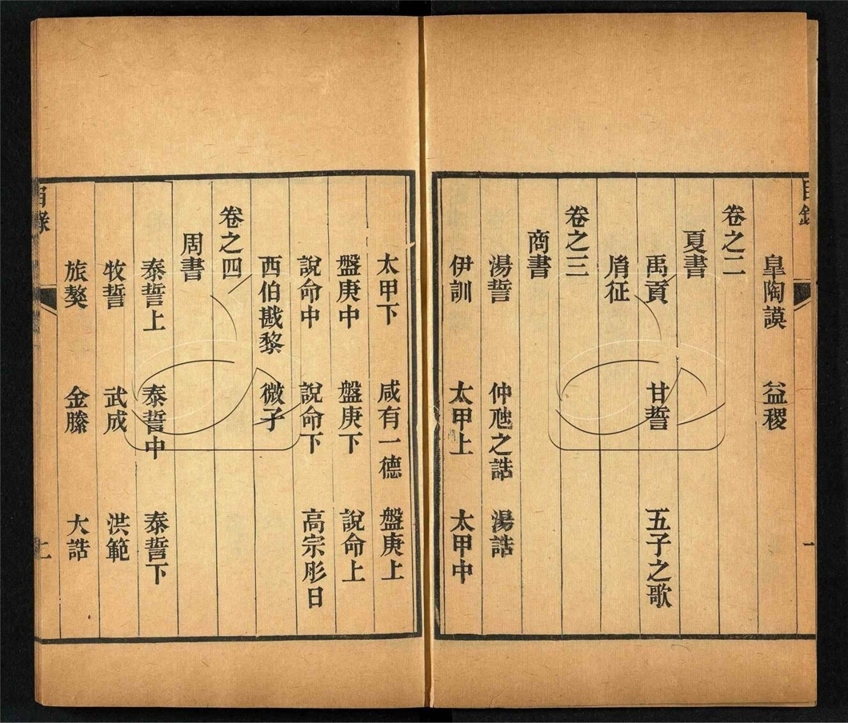 目錄
皐陶謨 益稷
卷之二
夏書
禹貢 甘誓 五子之歌
胤征
卷之三
商書
湯誓 仲虺之誥 湯誥
伊訓 太甲上 太甲中
一
太甲下 咸有一德 盤庚上
盤庚中 盤庚下 說命上
說命中 說命下 高宗肜日
西伯戡黎 微子
卷之四
周書
泰誓上 泰誓中 泰誓下
牧誓 武成 洪範
旅獒 金縢 大誥
目錄